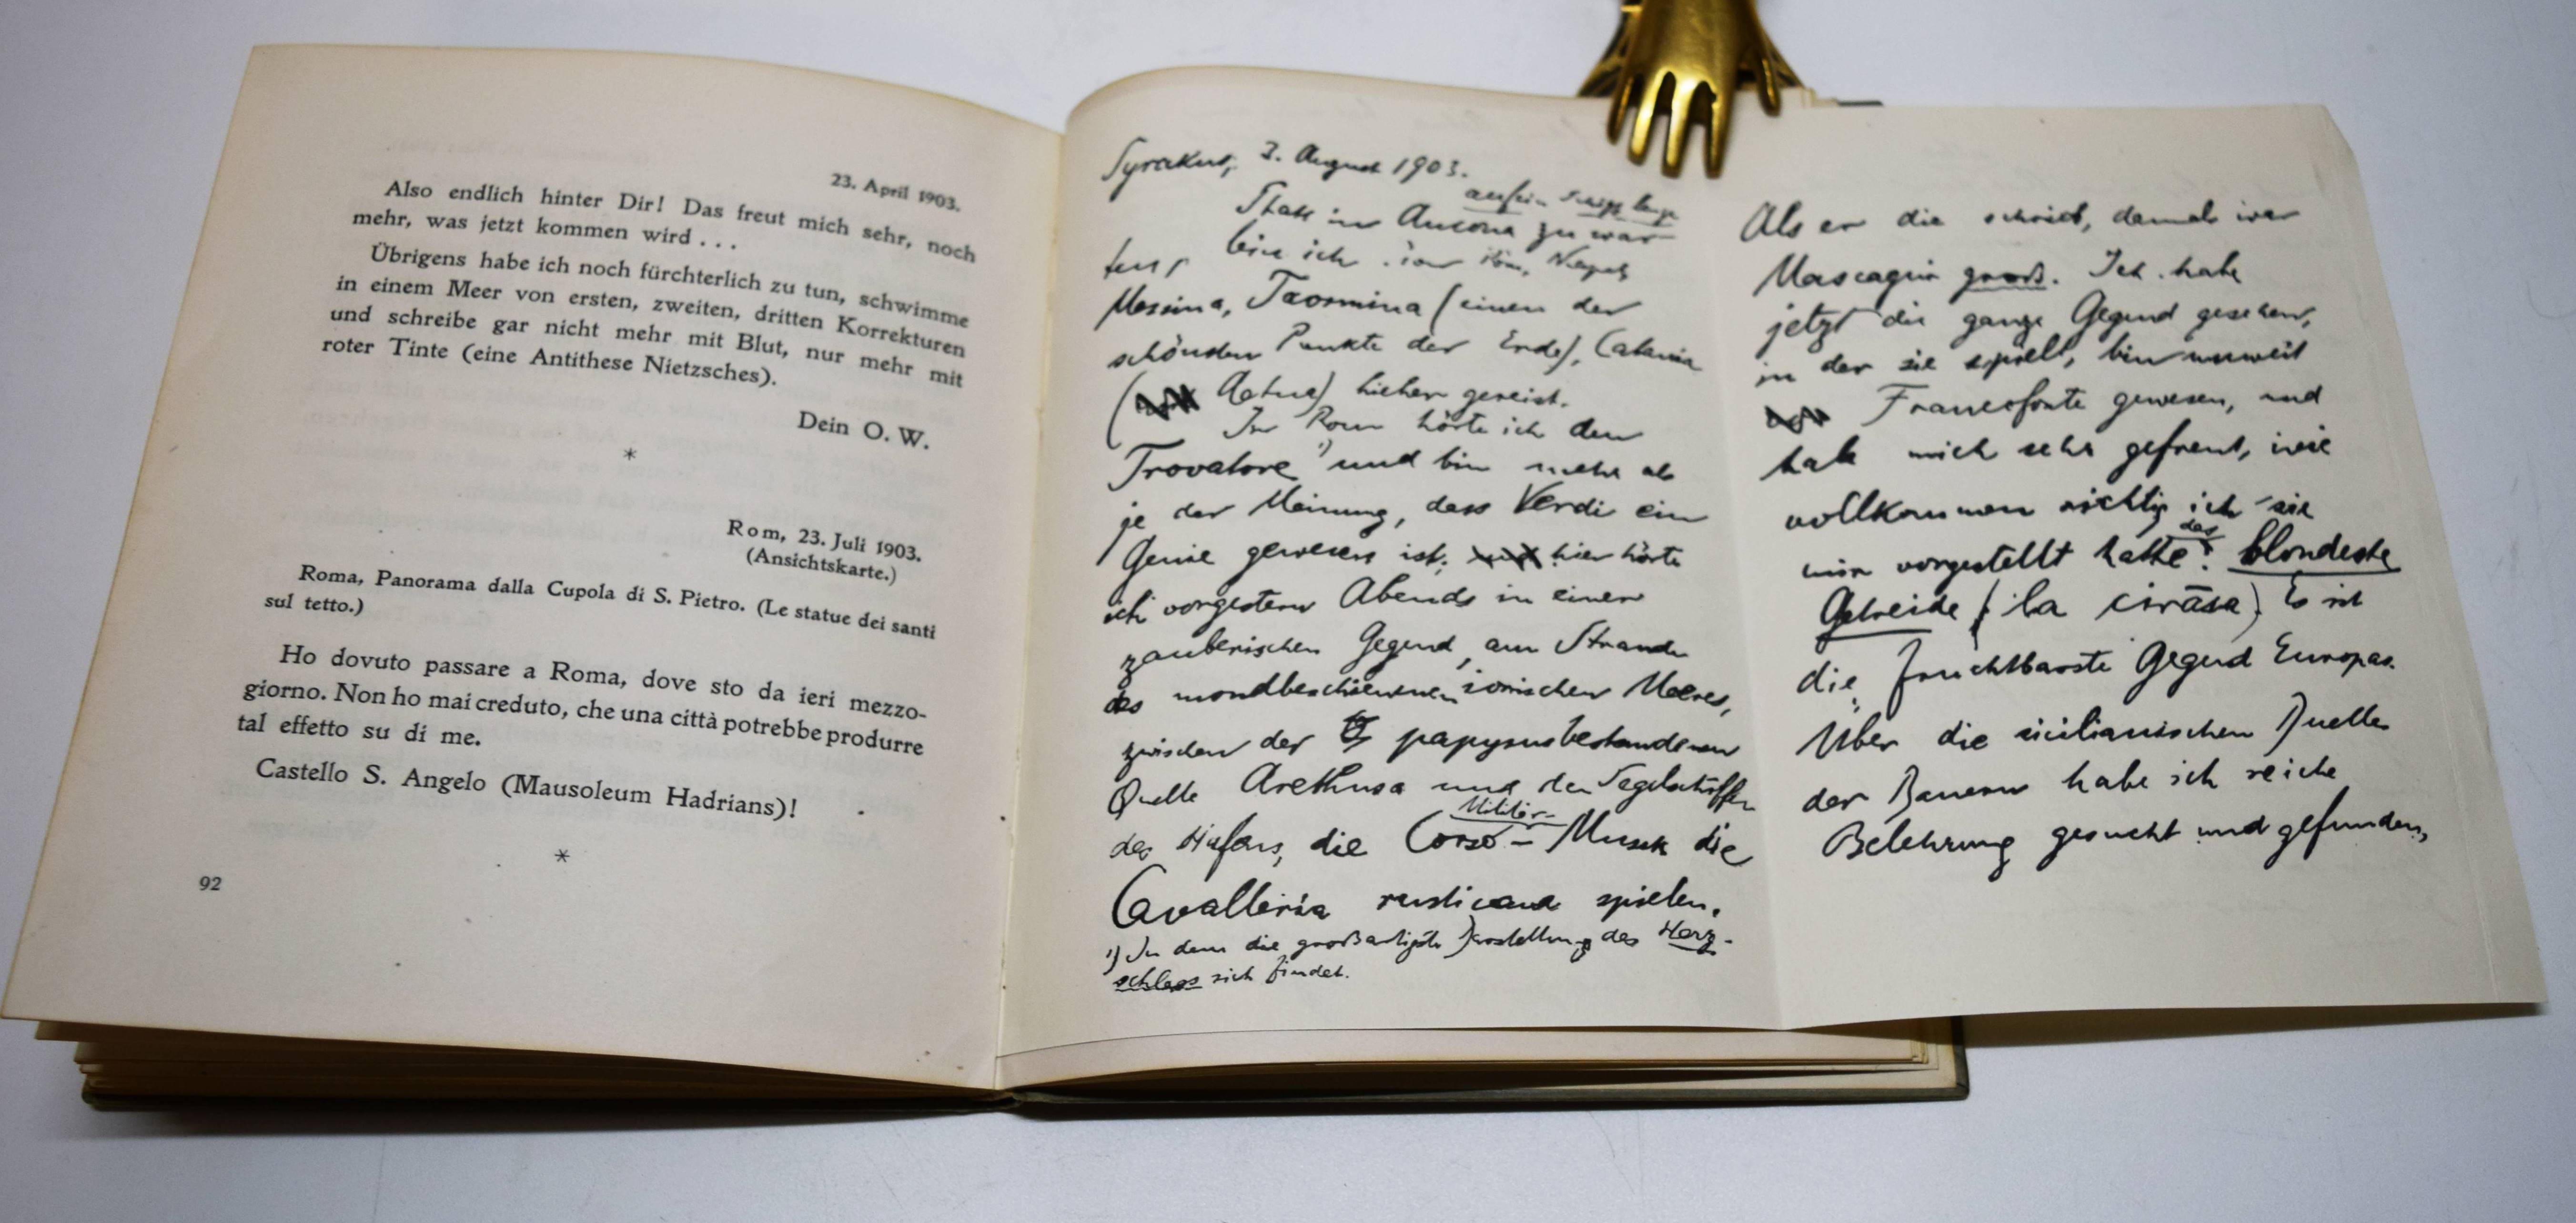 23. April 1903.
Also endlich hinter Dir! Das freut mich sehr, noch
mehr, was jetzt kommen wird . . .
Übrigens habe ich noch fürchterlich zu tun, schwimme
in einem Meer von ersten, zweiten, dritten Korrekturen
und schreibe gar nicht mehr mit Blut, nur mehr mit
roter Tinte (eine Antithese Nietzsches).
Dein O. W.
*
Rom, 23. Juli 1903.
(Ansichtskarte.)
Roma, Panorama dalla Cupola di S. Pietro. (Le statue dei santi
sul tetto.)
Ho dovuto passare a Roma, dove sto da ieri mezzo-
giorno. Non ho mai creduto, che una città potrebbe produrre
tal effetto su di me.
Castello S. Angelo (Mausoleum Hadrians)!
*
92
Syrakus, 3. August 1903.
auf ein
Statt in Ancona zu war-
ten, bin ich Rom, Neapel,
Messina, Taormina (einen der
schönsten Punkte der Erde), Catania
(Aetna) hieher gereist.
In Rom hörte ich den
Trovatore ¹) und bin mehr als
je der Meinung, dass Verdi ein
Genie gewesen ist; hier hörte
ich vorgestern Abends in einer
zauberischen Gegend, am Strande
des mondbeschienenen ionischen Meeres,
zwischen der papyrusbestandenen
Quelle Arethusa und den Segelschiffen
des Hafens, die Corso-
Militär-
Musik die
Cavalleria rusticana spielen.
¹) In dem die großartigste Darstellung des Herz-
schlags sich findet.
Als er die schrieb, damals war
Mascagni groß. Ich habe
jetzt die ganze Gegend gesehen,
in der sie spielt, bin unweit
Francofonte gewesen, und
habe mich sehr gefreut, wie
vollkommen richtig ich sie
mir vorgestellt hatte: das blondeste
Getreide (la cirasa). Es ist
die fruchtbarste Gegend Europas.
Über die sicilianischen Duelle
der Bauern habe ich reiche
Belehrung gesucht und gefunden,